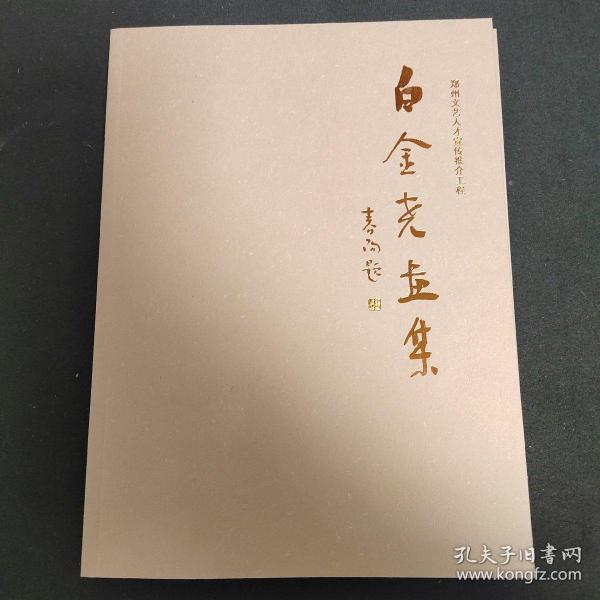 郑州文艺人才宣传推介工程
白金尧画集
春陶题
孔夫子旧书网
www.kongfz.com